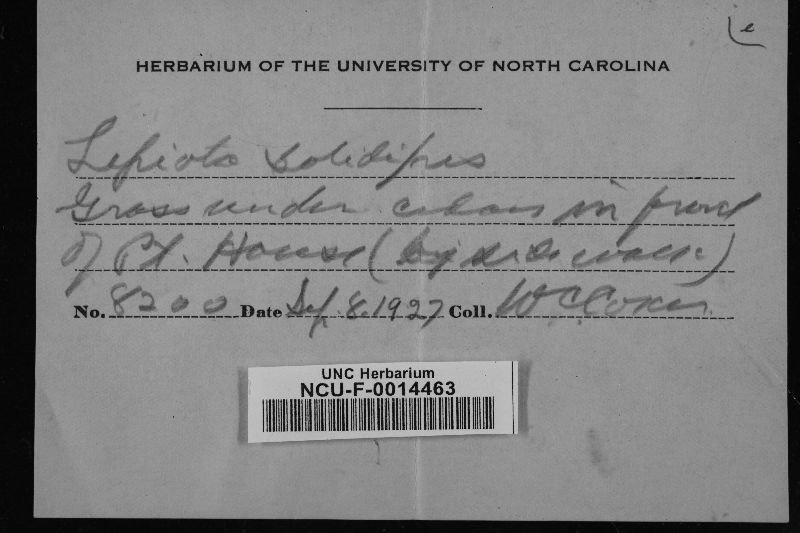 e
HERBARIUM OF THE UNIVERSITY OF NORTH CAROLINA
Lepiota solidipes
Grass under cedars in front
of Pt. House (by side walk)
No. 8200 Date Sep. 8. 1927 Coll. W C Coker.
UNC Herbarium
NCU-F-0014463